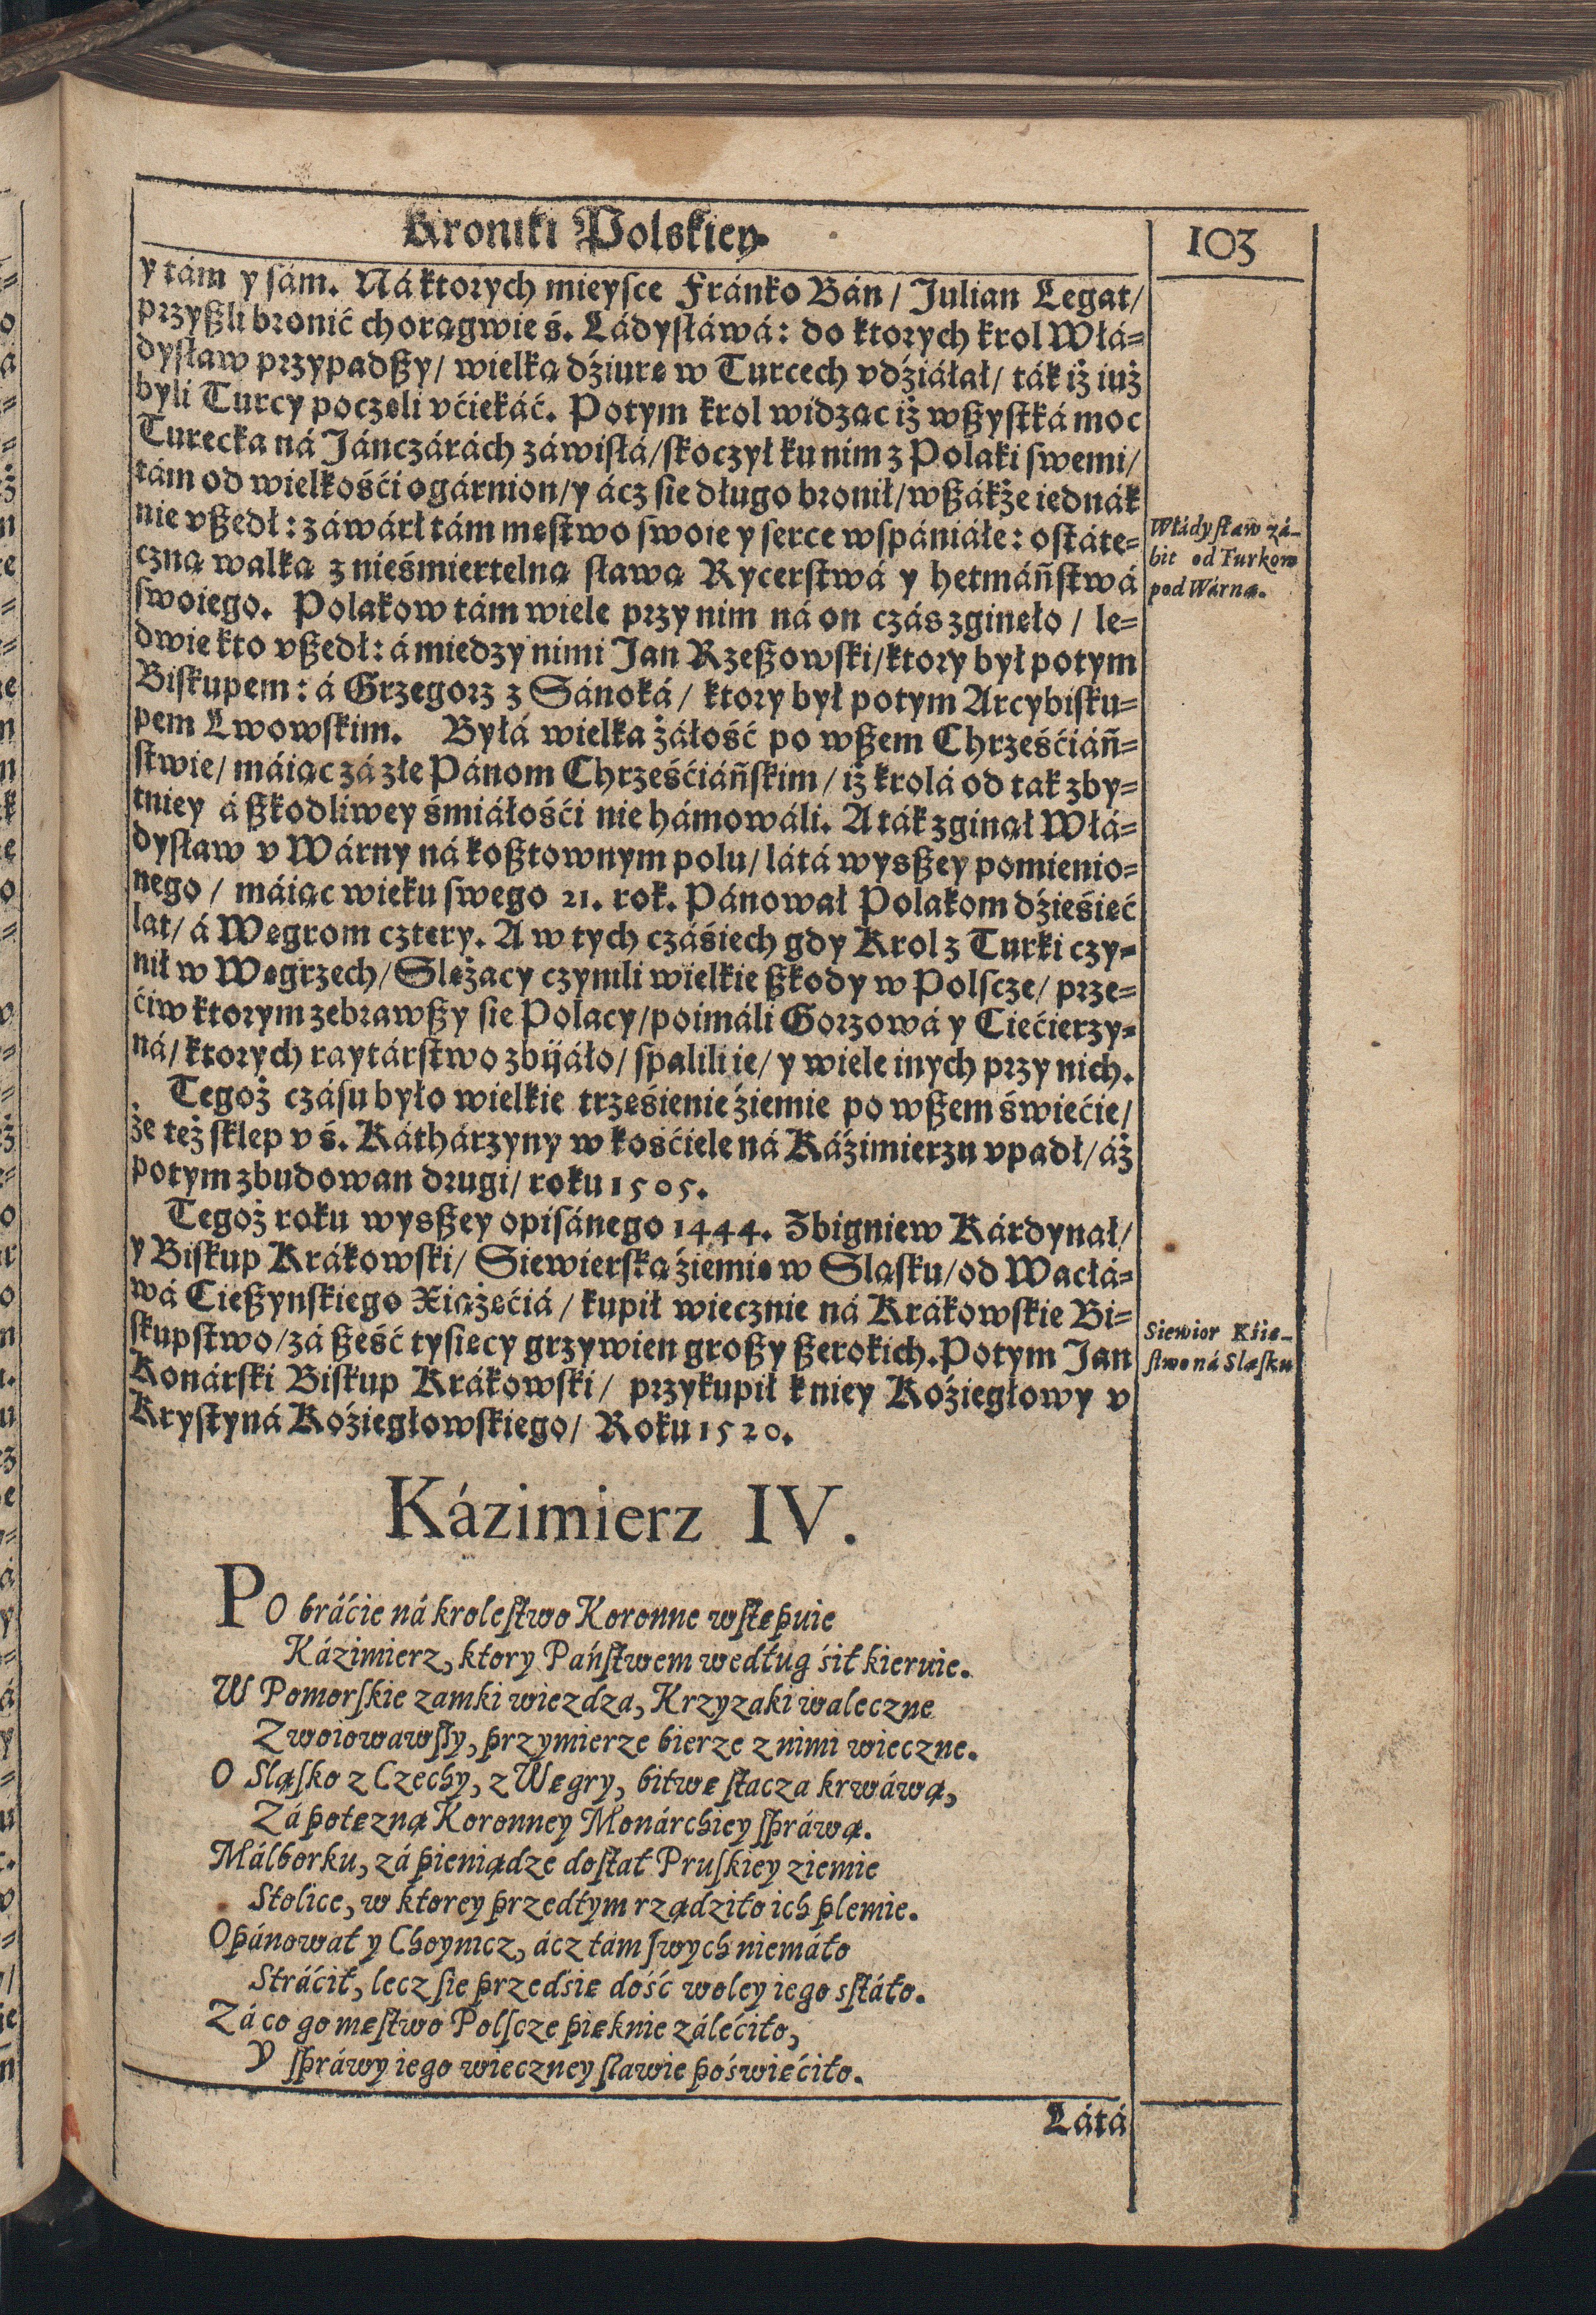 Kroniki Polskiey.
103
y tám y sám. Ná ktorych mieysce Fránko Bán / Julian Legat /
przyßli bronić chorągwie ś. Ládysłáwá: do ktorych krol Włá=
dysław przypadßy / wielką dźiurę w Turcech vdźiáłał / ták iż iuż
byli Turcy poczęli vćiekáć. Potym krol widząc iż wßystká moc
Turecka ná Jánczárách záwisłá / skoczył ku nim z Polaki swemi /
tám od wielkośći ogárnion / y ácz sie długo bronił / wßákże iednák
nie vßedł: záwárł tám męstwo swoie y serce wspániáłe: ostáte=
czną walką z nieśmiertelną sławą Rycerstwá y hetmáństwá
swoiego. Polakow tám wiele przy nim ná on czás zginęło / le=
dwie kto vßedł: á miedzy nimi Jan Rzeßowski / ktory był potym
Biskupem: á Grzegorz z Sánoká / ktory był potym Arcybisku=
pem Lwowskim. Byłá wielka żáłość po wßem Chrześćiáń=
stwie / máiąc zá złe Pánom Chrześćiáńskim / iż krolá od tak zby=
tniey á ßkodliwey śmiáłośći nie hámowáli. A ták zginął Włá=
dysław v Wárny ná koßtownym polu / látá wysßey pomienio=
nego / máiąc wieku swego 21. rok. Pánował Polakom dźieśięć
lat / á Węgrom cztery. A w tych czáśiech gdy Krol z Turki czy=
nił w Węgrzech / Slężacy czynili wielkie ßkody w Polscze / prze=
ćiw ktorym zebrawßy sie Polacy / poimáli Gorzowá y Ciećierzy=
ná / ktorych raytárstwo zbijáło / spalili ie / y wiele inych przy nich.
Tegoż czásu było wielkie trzęśienie źiemie po wßem świećie /
że też sklep v ś. Káthárzyny w kośćiele ná Káźimierzu vpadł / áż
potym zbudowan drugi / roku 1505.
Tegoż roku wysßey opisánego 1444. Zbigniew Kárdynał /
y Biskup Krákowski / Siewierską źiemię w Sląsku / od Wacłá=
wá Cießynskiego Xiążęćiá / kupił wiecznie ná Krákowskie Bi=
skupstwo / zá ßeść tysięcy grzywien großy ßerokich. Potym Jan
Konárski Biskup Krákowski / przykupił k niey Koźiegłowy v
Krystyná Koźiegłowskiego / Roku 1520.
Włádysław zá-
bit od Turkow
pod Wárną.
Siewior Kśię-
stwo ná Sląsku
Kázimierz IV.
PO bráćie ná krolestwo Koronne wstępuie
Kázimierz, ktory Państwem według śił kieruie.
W Pomorskie zamki wiezdza, Krzyzaki waleczne
Zwoiowawszy, przymierze bierze z nimi wieczne.
O Sląsko z Czechy, z Węgry, bitwe stacza krwáwą,
Zá potezną Koronney Monárchiey spráwą.
Málborku, zá pieniądze dostał Pruskiey ziemie
Stolice, w ktorey przedtym rządziło ich plemie.
Opánował y Choynicz, ácz tám swych niemáło
Stráćił, lecz sie przedśie dość woley iego sstáło.
Zá co go męstwo Polscze pieknie záleciło,
Y spráwy iego wieczney sławie poświećiło.
Látá